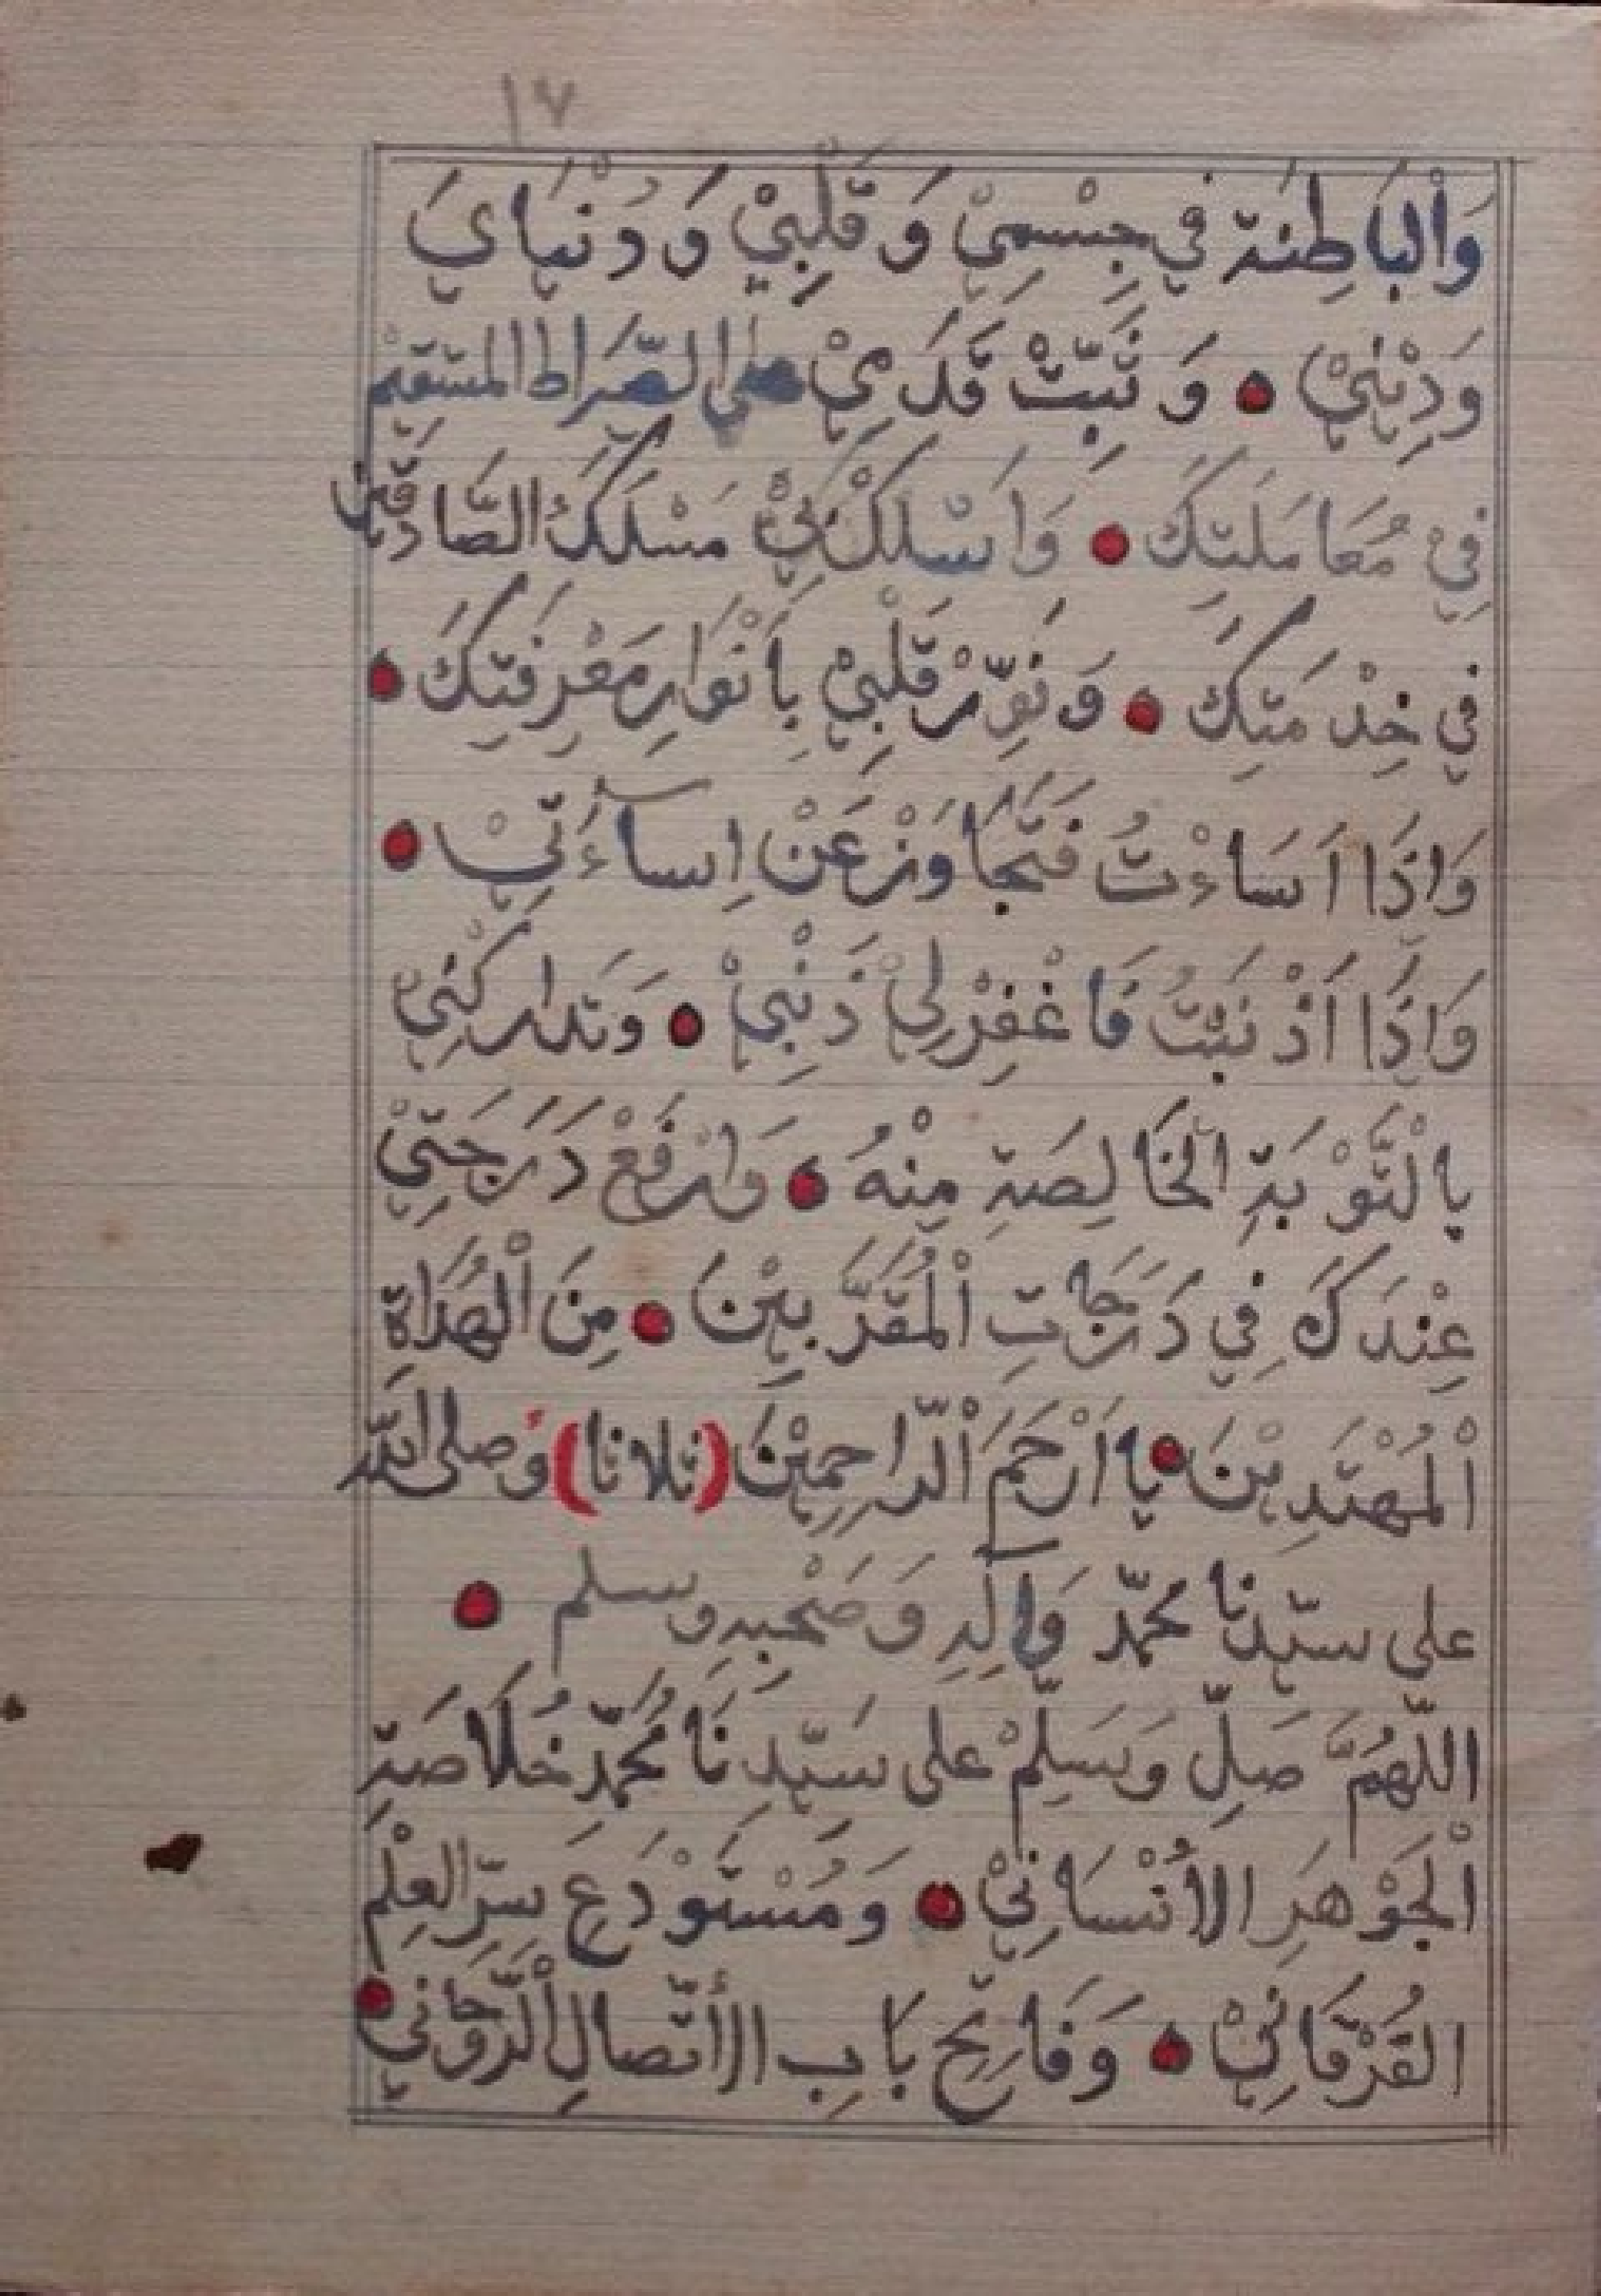 ١٧
وَاْلبَاطِنَة فِي جِسْمِيْ وَ قَلْبِيْ وَ دُنْيَايَ
وَدِيْنِيْ • وَ ثَبِّتْ قَدَمِيْ على الصِّرَاط المستقيْمَ
فِيْ مُعَامَلَتِكَ • وَاَسْلِكْ لِيْ مَسْلَكَ الصَّادِقِيْنَ
فِي خِدْمَتِكَ • وَ نَوِّرْ قَلْبِيْ بِاَنْوَارِ مَعْرِفَتِكَ •
وَاِذَا اَسَاءْتُ فَتَجَاوَزْ عَنْ اِسآءَتِيْ •
وَاِذَا اَذْنَبْتُ فَاغْفِرْلِيْ ذَنْبِيْ • وَتَدَارَكْنِيْ
بِالْتَّوْبَةِ الْخَالِصَةِ مِنْهُ • وَارْفَعْ دَرَجَتِيْ
عِنْدَكَ فِي دَرَجَاتِ اْلمُقَرَّبِيْنَ • مِنَ اْلهُدَاةِ
اْلمُهْتَدِيْنَ • يَا اَرْحَمَ اْلرَّاحِمِيْنَ (ثلاثا) وَصلى اللّه
على سيّدنا محمّد وَآلِهِ وَصَحْبِهِ وسلم •
اللّهُمَّ صَلِّ وَسَلِّمْ على سَيّدِنَا مُحَمّدٍ خُلَاصَةِ
اْلجَوْهَرِ الأُنْسَانِيْ • وَمُسْتَوْدَعِ سِرِّ العِلْمِ
القُرْقَانِيْ • وَفَاتِحِ بَابِ الأتّصالِ اْلرَّوحَاني •